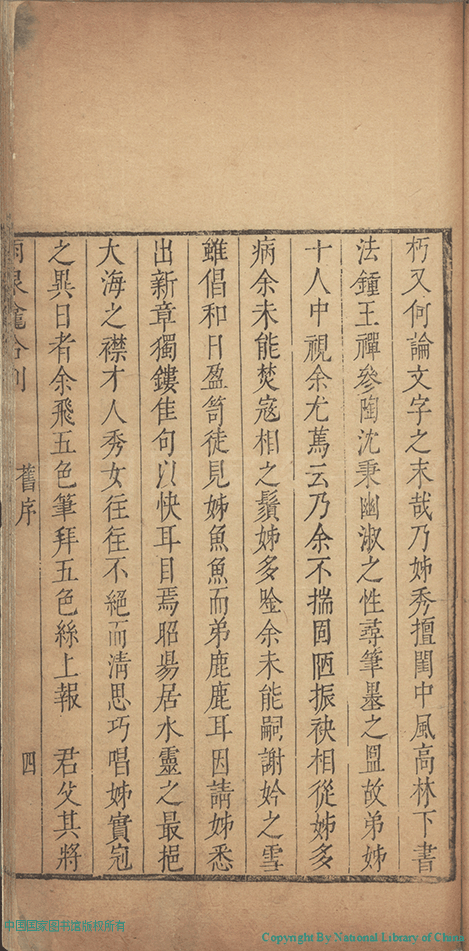 朽又何論文字之末哉乃姊秀擅閨中風高林下書
法鍾王禪參陶沈秉幽淑之性尋筆墨之盟故弟姊
十人中視余尤蔫云乃余不揣固陋振袂相從姊多
病余未能焚寇相之鬚姊多唫余未能嗣謝妗之雪
雖倡和日盈笥徒見姊魚魚而弟鹿鹿耳因請姊悉
出新章獨鏤佳句以快耳目焉昭易居水靈之最挹
大海之襟才人秀女往徃不絕而清思巧唱姊實冠
之異日者余飛五色筆拜五色絲上報 君父其將
龕合刂 舊序 四
中国国家图书馆版权所有
Copyright By National Library of China